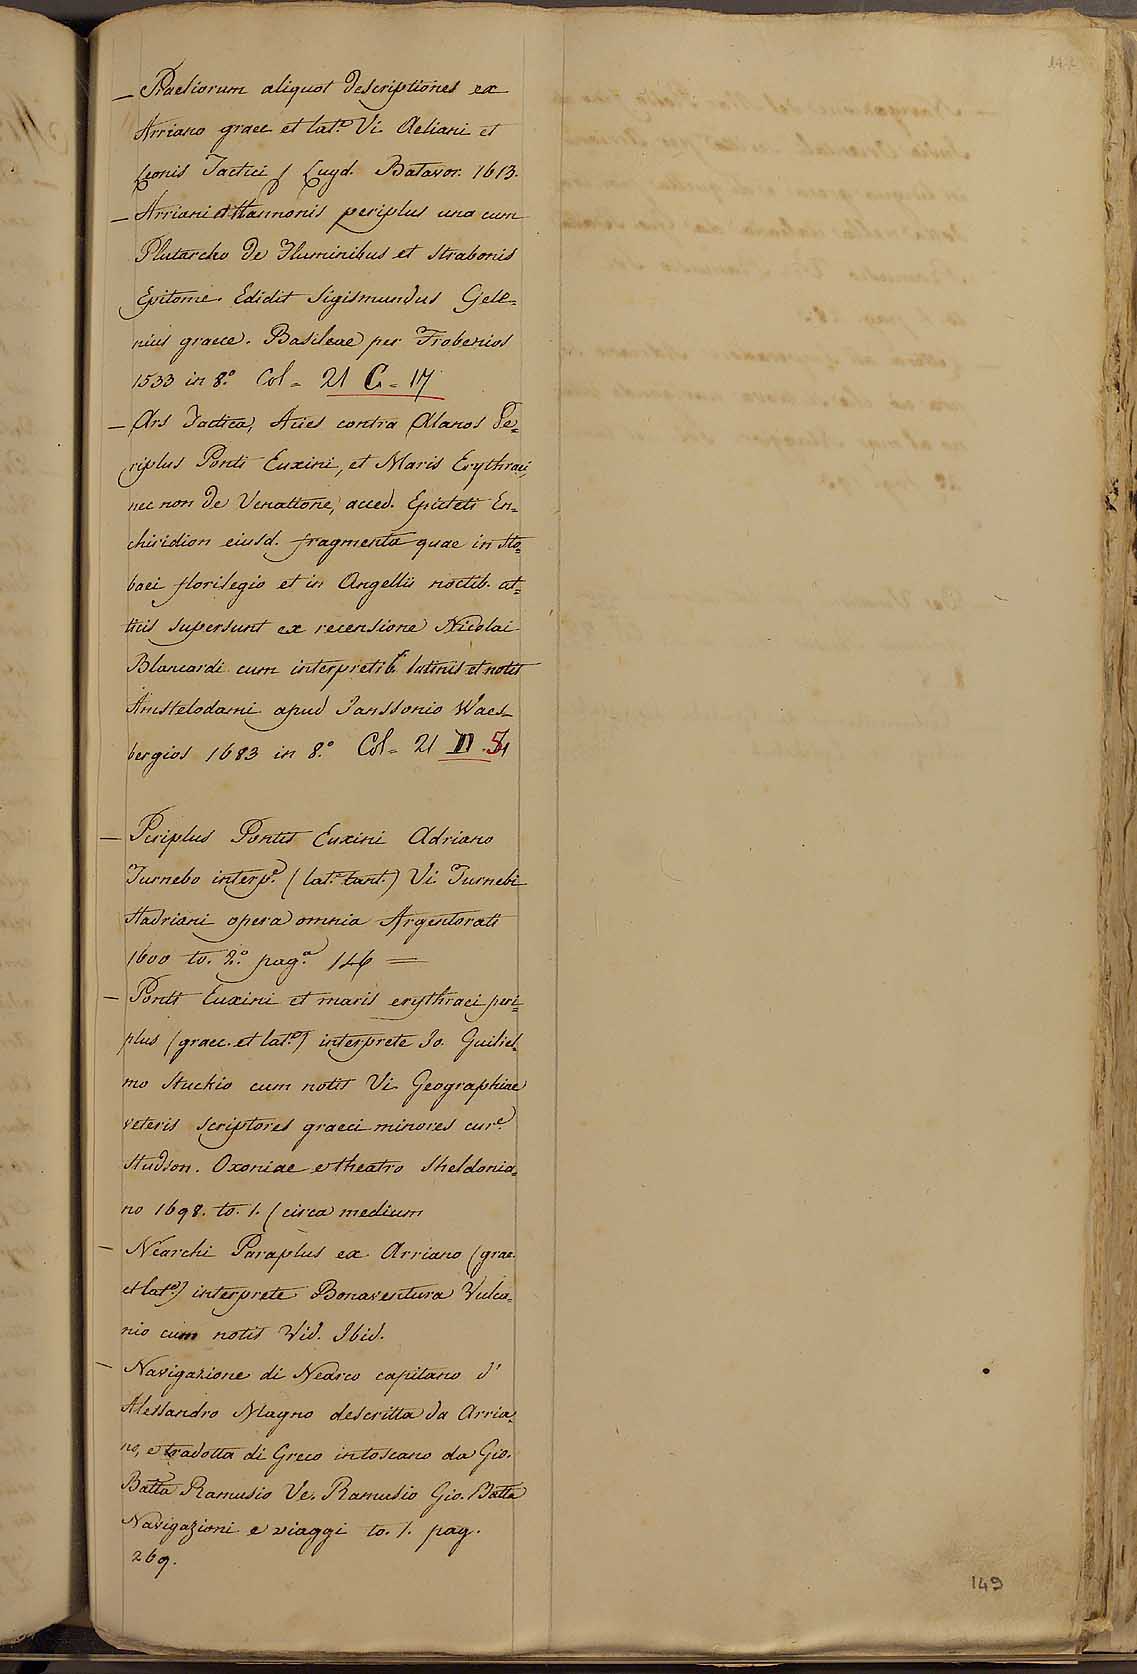 — Praeliorum aliquot descriptiones ex
Arriano graec et lat.e Vi Aeliani et
Leonis Tactici / Lugd. Batavor. 1613.
— Arriani et Hannonis periplus una cum
Plutarcho de Fluminibus et Strabonis
Epitome. Edidit Sigismundus Gele=
nius graece. Basileae per Frobenios
1533 in 8.o Col = 21 C = 17
— Ars Tactica, Acies contra Alanos Pe=
riplus Ponti Euxini, et Maris Erythraei,
nec non de Venatione, acced. Epicteti En=
chiridion eiusd. fragmenta quae in Sto=
baei florilegio et in Angellii noctib. at=
ticis supersunt ex recensione Nicolai
Blancardi cum interpretib. latinis et notis
Amstelodami apud Janssonio Waes=
bergios 1683 in 8.o Col = 21 D . 5
— Periplus Pontis Euxini Adriano
Turnebo interp.e ( lat.e tant.) Vi Turnebi
Hadriani opera omnia Argentorati
1600 to. 2.o pag.a 146 =
— Ponti Euxini et maris erythraei peri=
plus (graec. et lat.e) interprete Jo. Guiliel=
mo Stuckio cum notis Vi Geographiae
veteris scriptores graeci minores cur.e
Hudson. Oxoniae e theatro Sheldonia=
no 1698. to. 1. ( circa medium
— Nearchi Paraplus ex Arriano (grae.
et lat.e) interprete Bonaventura Vulca=
nio cum notis Vid. Ibid.
— Navigazione di Nearco capitano d'
Alessandro Magno descritta da Arria=
no, e tradotta di Greco in toscano da Gio.
Batta Ramusio Ve. Ramusio Gio. Batta
Navigazioni e viaggi to. 1. pag.
269.
149